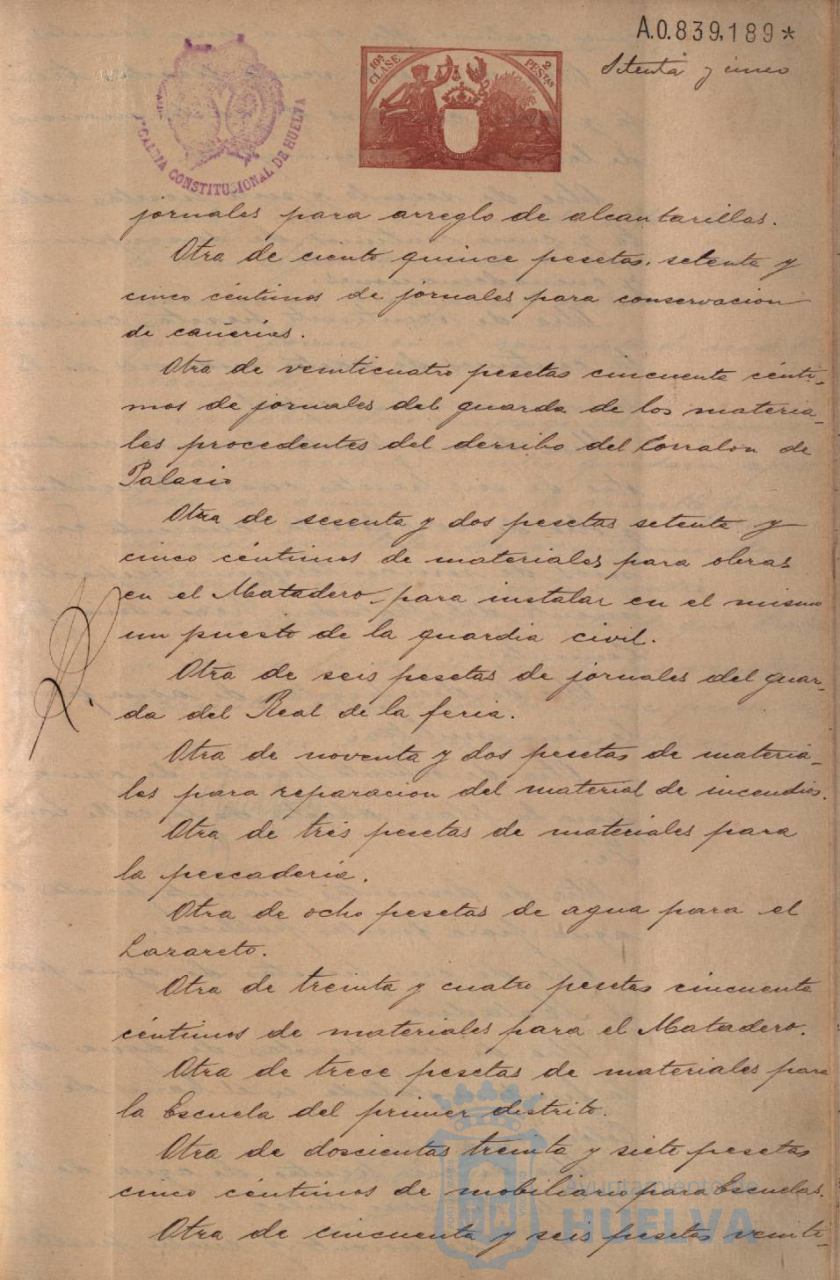 A.0.839,189*
Setenta y cinco
10ª CLASE
2 PESETAS
ALCALDIA CONSTITUSIONAL DE HUELVA
jornales para arreglo de alcantarillas.
Otra de ciento quince pesetas, setenta y
cinco céntimos de jornales para conservacion
de cañerias.
Otra de veinticuatro pesetas cincuenta cénti-
mos de jornales del guarda de los materia-
les procedentes del derribo del Corralon de
Palacio
Otra de sesenta y dos pesetas setenta y
cinco céntimos de materiales para obras
en el Matadero, para instalar en el mismo
un puesto de la guardia civil.
Otra de seis pesetas de jornales del guar-
da del Real de la feria.
Otra de noventa y dos pesetas de materia-
les para reparacion del material de incendios.
Otra de tres pesetas de materiales para
la pescaderia.
Otra de ocho pesetas de agua para el
Lazareto.
Otra de treinta y cuatro pesetas cincuenta
céntimos de materiales para el Matadero.
Otra de trece pesetas de materiales para
la Escuela del primer distrito.
Otra de doscientas treinta y siete pesetas
cinco céntimos de mobiliario para Escuelas.
Otra de cincuenta y seis pesetas veinti-
Ayuntamiento de
HUELVA